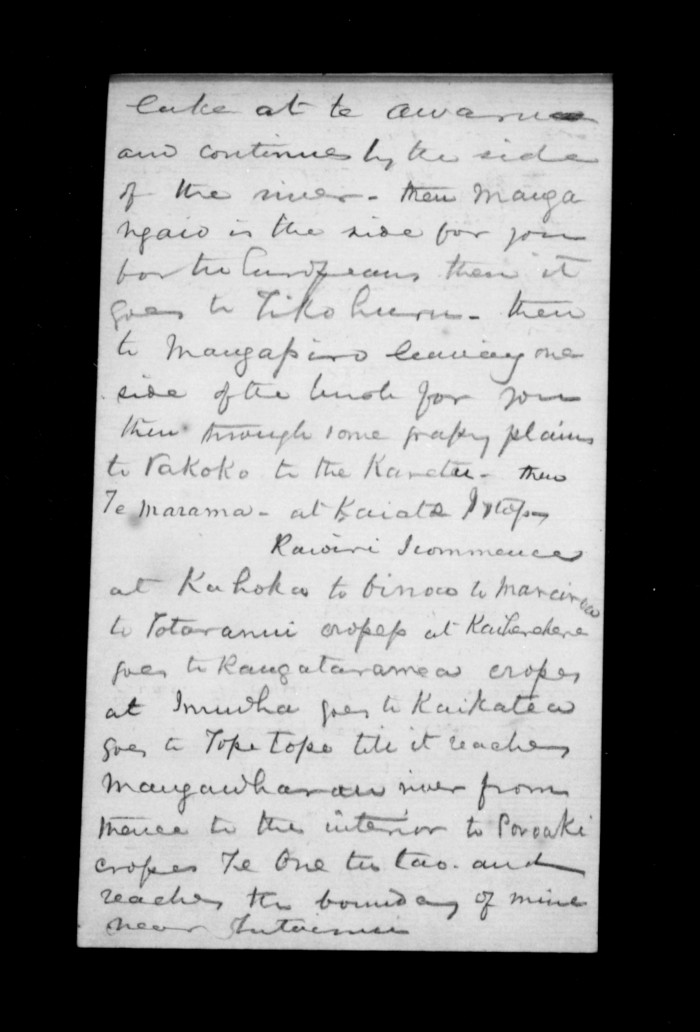 lake at te awarua
and continues by the side
of the river - then Manga
ngaio is the side for you
for the Europeans then it
goes to Tikohuru - then
to Mangapiro leaving one
side of the bush for you
then through some grassy plains
to Rakoko to the Karetu - then
Te Marama - at Kaiata I stop
Rawiri I commence
at Kahoka to to
to Totaranui crosses at Kaiherehere
goes to Raugataramea crosses
at Imuwha goes to Kaikatea
goes to Tope Tope till it reaches
Mangawharau river from
thence to the interior to Poroaki
crosses Te One and
reaches the boundary of mine
near